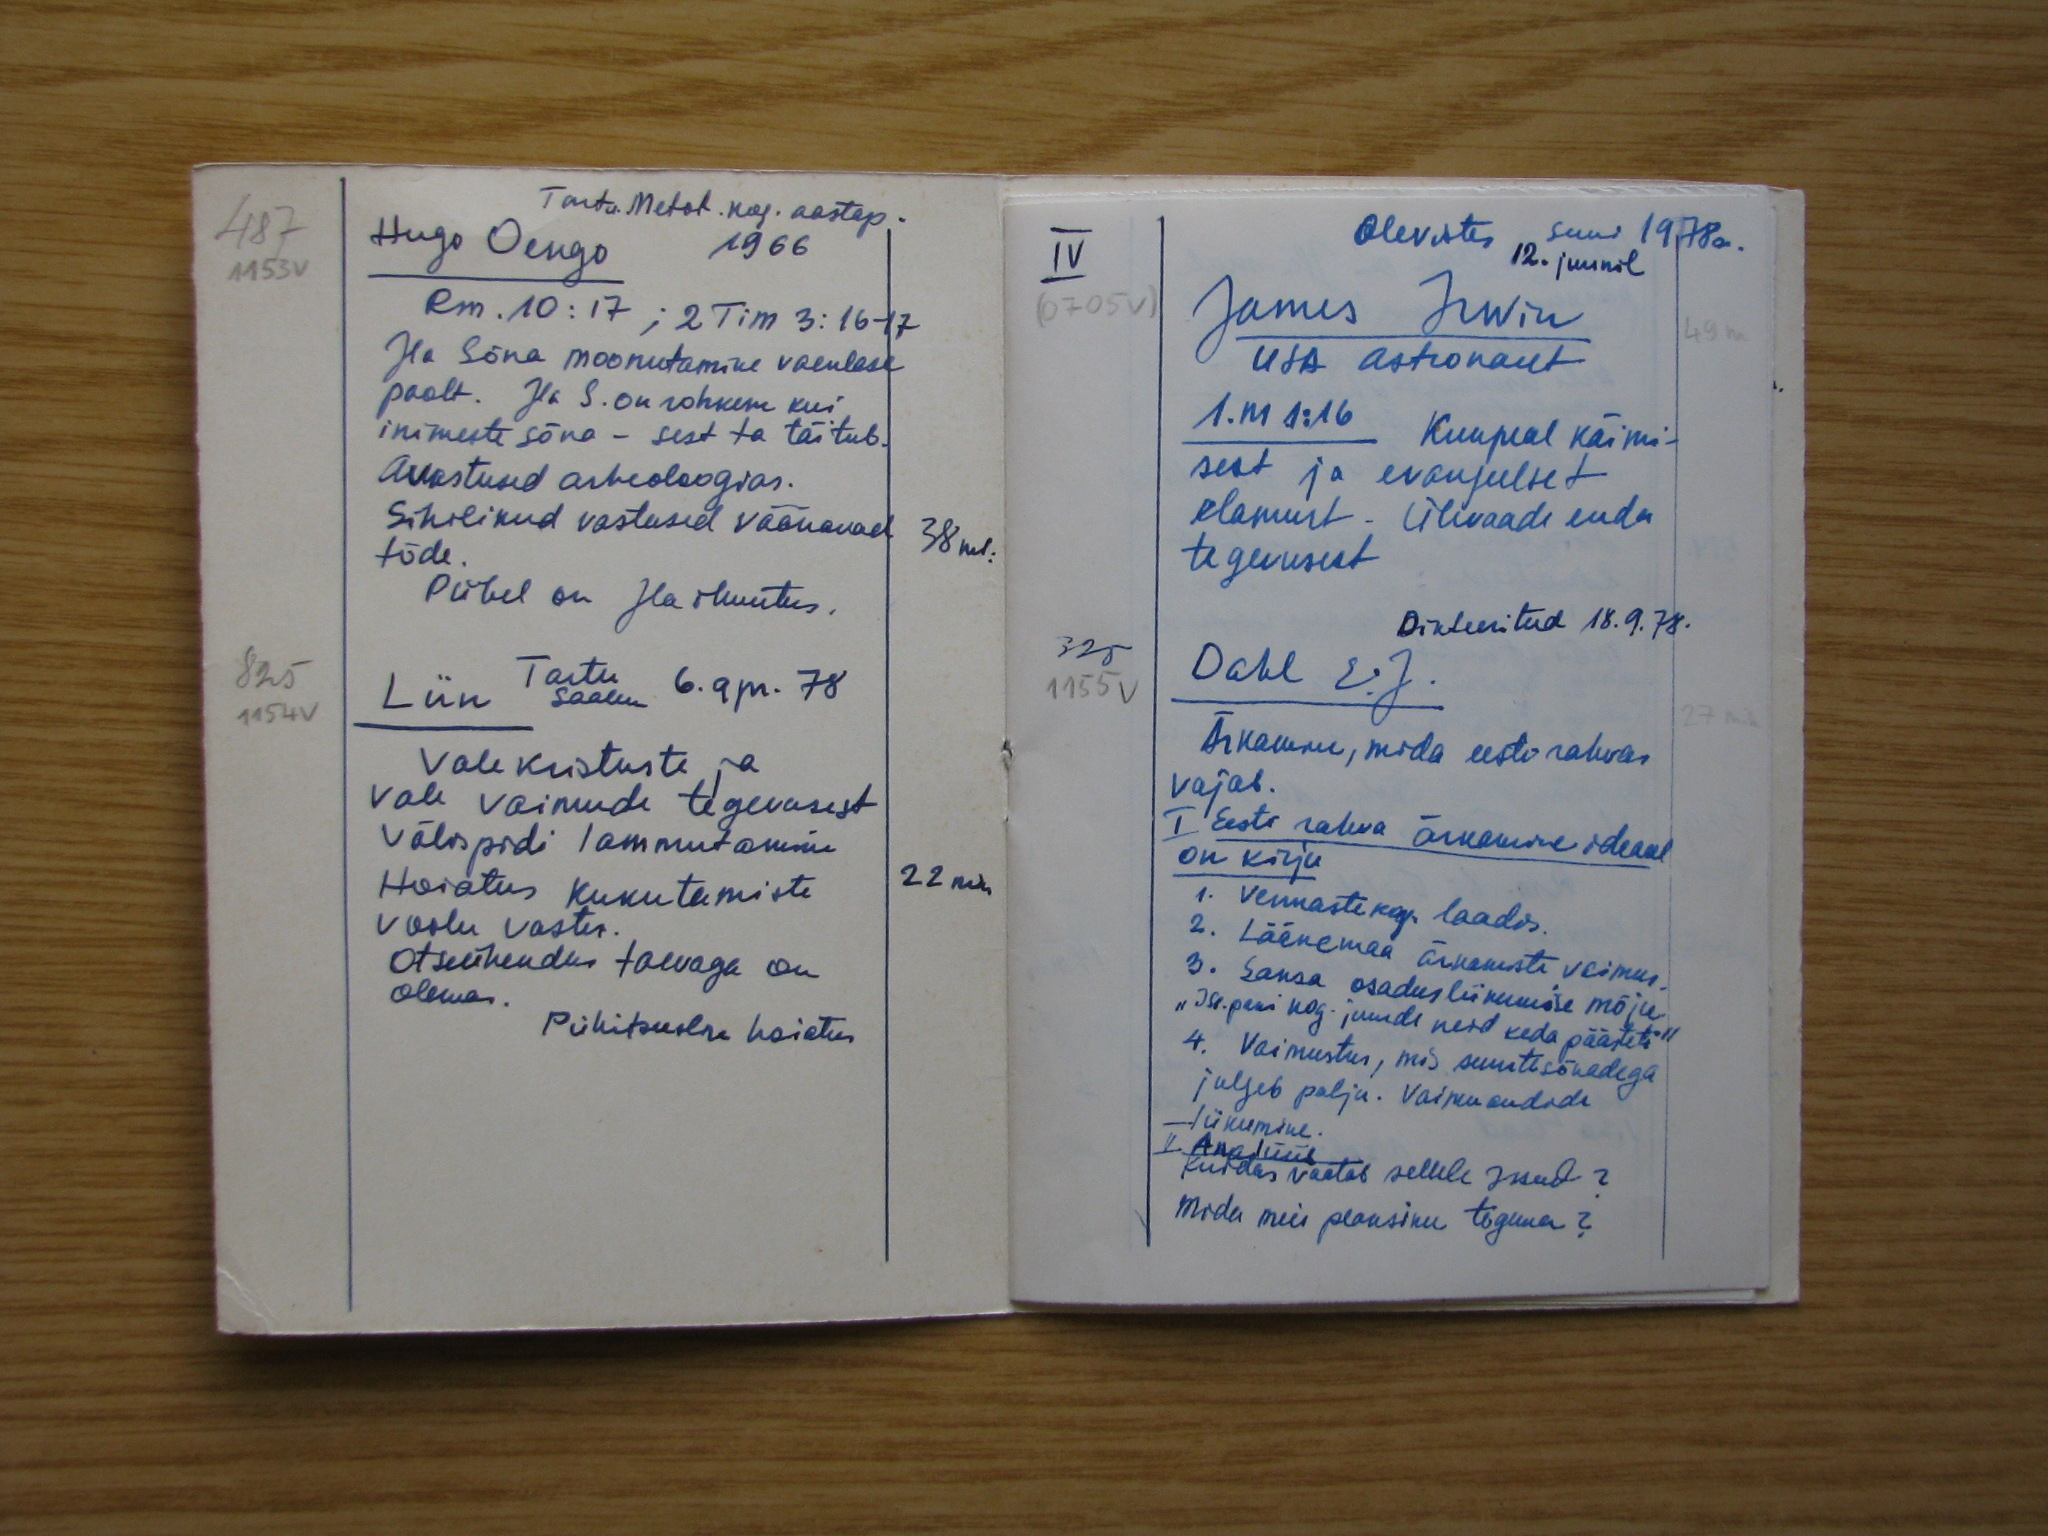 487
1153V
Tartu Metod. kog. aastap.
Hugo Oengo 1966
Rm. 10:17 ; 2 Tim 3:16-17
Jla Sõna moonutamine vaenlase
poolt. Jla S. on rohkem kui
inimeste sõna - sest ta täitub.
Avastused arheoloogias.
Sihilikud vastused väänavad
tõde.
38 min.
Piibel on Jla ilmutus.
825
1154V
Liin Tartu saalem 6. apr. 78
Valekristuste ja
vale vaimude tegevusest
Välispidi lammutamine
Hoiatus kukutamiste
22 min
voolu vastu.
Otseühendus taevaga on
olemas.
Pühitsuseline hoiatus
IV
(0705V)
Olevistes suvi 1978a.
12. juunil
James Irwin
49 m
USA astronaut
1. M 1:16 Kuupeal käimi-
sest ja evangeelset
elamust. Ülevaade enda
tegevusest
325
1155V
Dikteeritud 18.9.78.
Dahl E.J.
27 min
Ärkamine, mida eesti rahvas
vajab.
I Eesti rahva ärkamine ideaal
on kirju
1. Vennastekog. laadis.
2. Läänemaa ärkamiste vaimus.
3. Saksa osadusliikumise mõju
"Iss. pani kog. juurde neid keda päästeti"
4. Vaimustus, mis suurtesõnadega
julgeb palju. Vaimuandide
liikumine.
II Analüüs
Kuidas vaatab sellele Issand?
Mida meie peaksime tegema?